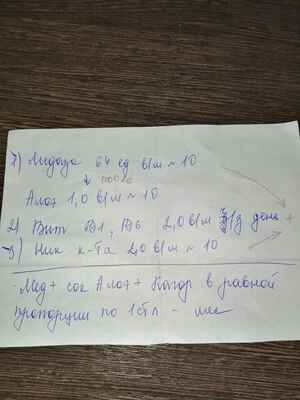 1) Лидаза 64 ед в/м № 10
после
Алоэ 1,0 в/м № 10
2) Вит В1, В6 2,0 в/м ч/з день +
3) Ник к-та 2,0 в/м № 10
Мед + сок Алоэ + Кагор в равной
пропорции по 1 ст л -